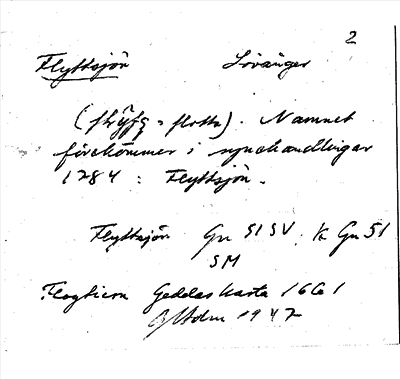 2
Flyttsjön Lövånger
(flytta = flotta). Namnet
förekommer i synehandlingar
1784 : Flyttsjön.
Flyttsjön Gn 51 SV. K Gn 51
SM
Geddas karta 1661
1947